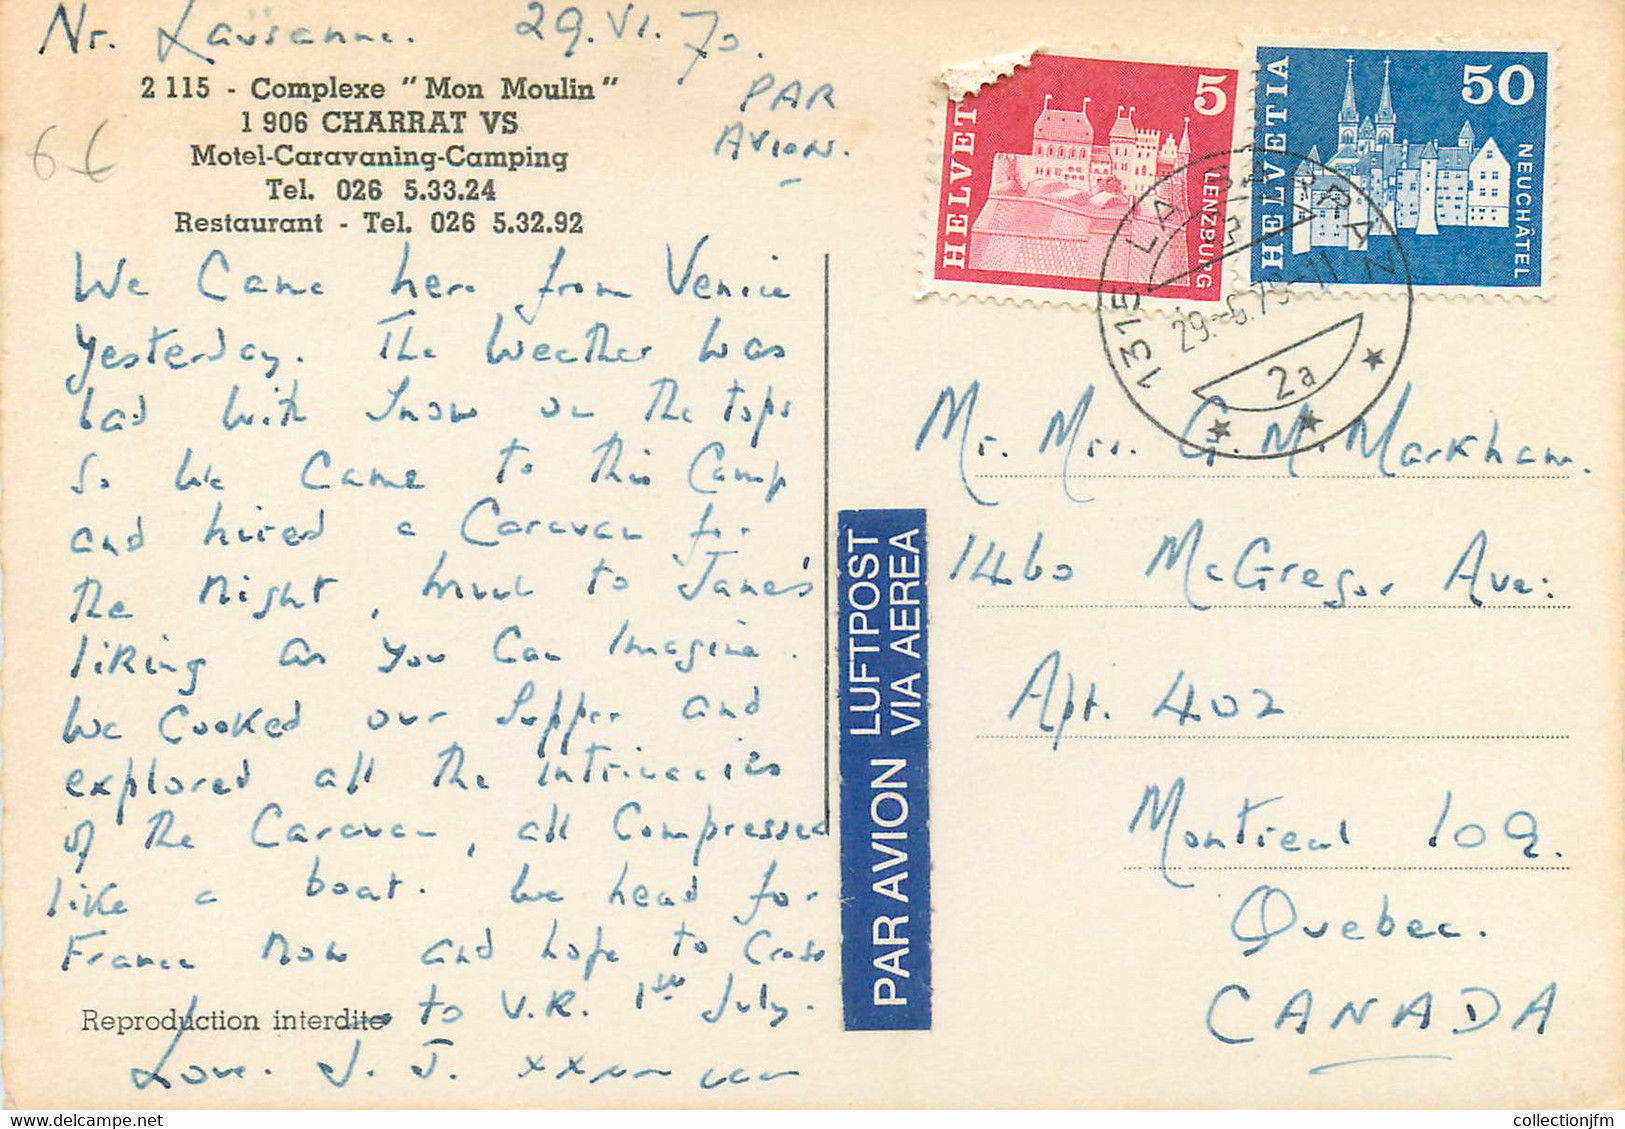 Nr. Lausanne. 29.VI.70.
2 115 - Complexe "Mon Moulin"
1 906 CHARRAT VS
Motel-Caravaning-Camping
Tel. 026 5.33.24
Restaurant - Tel. 026 5.32.92
PAR
AVION.
6€
We came here from Venice
yesterday. The weather was
bad with snow on the tops
so we came to this camp
and hired a caravan for
the night, much to Jane's
liking as you can imagine.
We cooked our supper and
explored all the intricacies
of the caravan, all compressed
like a boat. We head for
France now and hope to cross
to U.K. 1st July.
Reproduction interdite
Love. J. J. xxxxx
HELVETIA
5
LENZBURG
HELVETIA
50
NEUCHÂTEL
1315 LA SARRAZ
29.-6.70
2a
PAR AVION LUFTPOST
VIA AEREA
Mr. Mrs. G. M. Markham.
1460 McGregor Ave:
Apt. 402
Montreal 109.
Quebec.
CANADA
collectionjfm